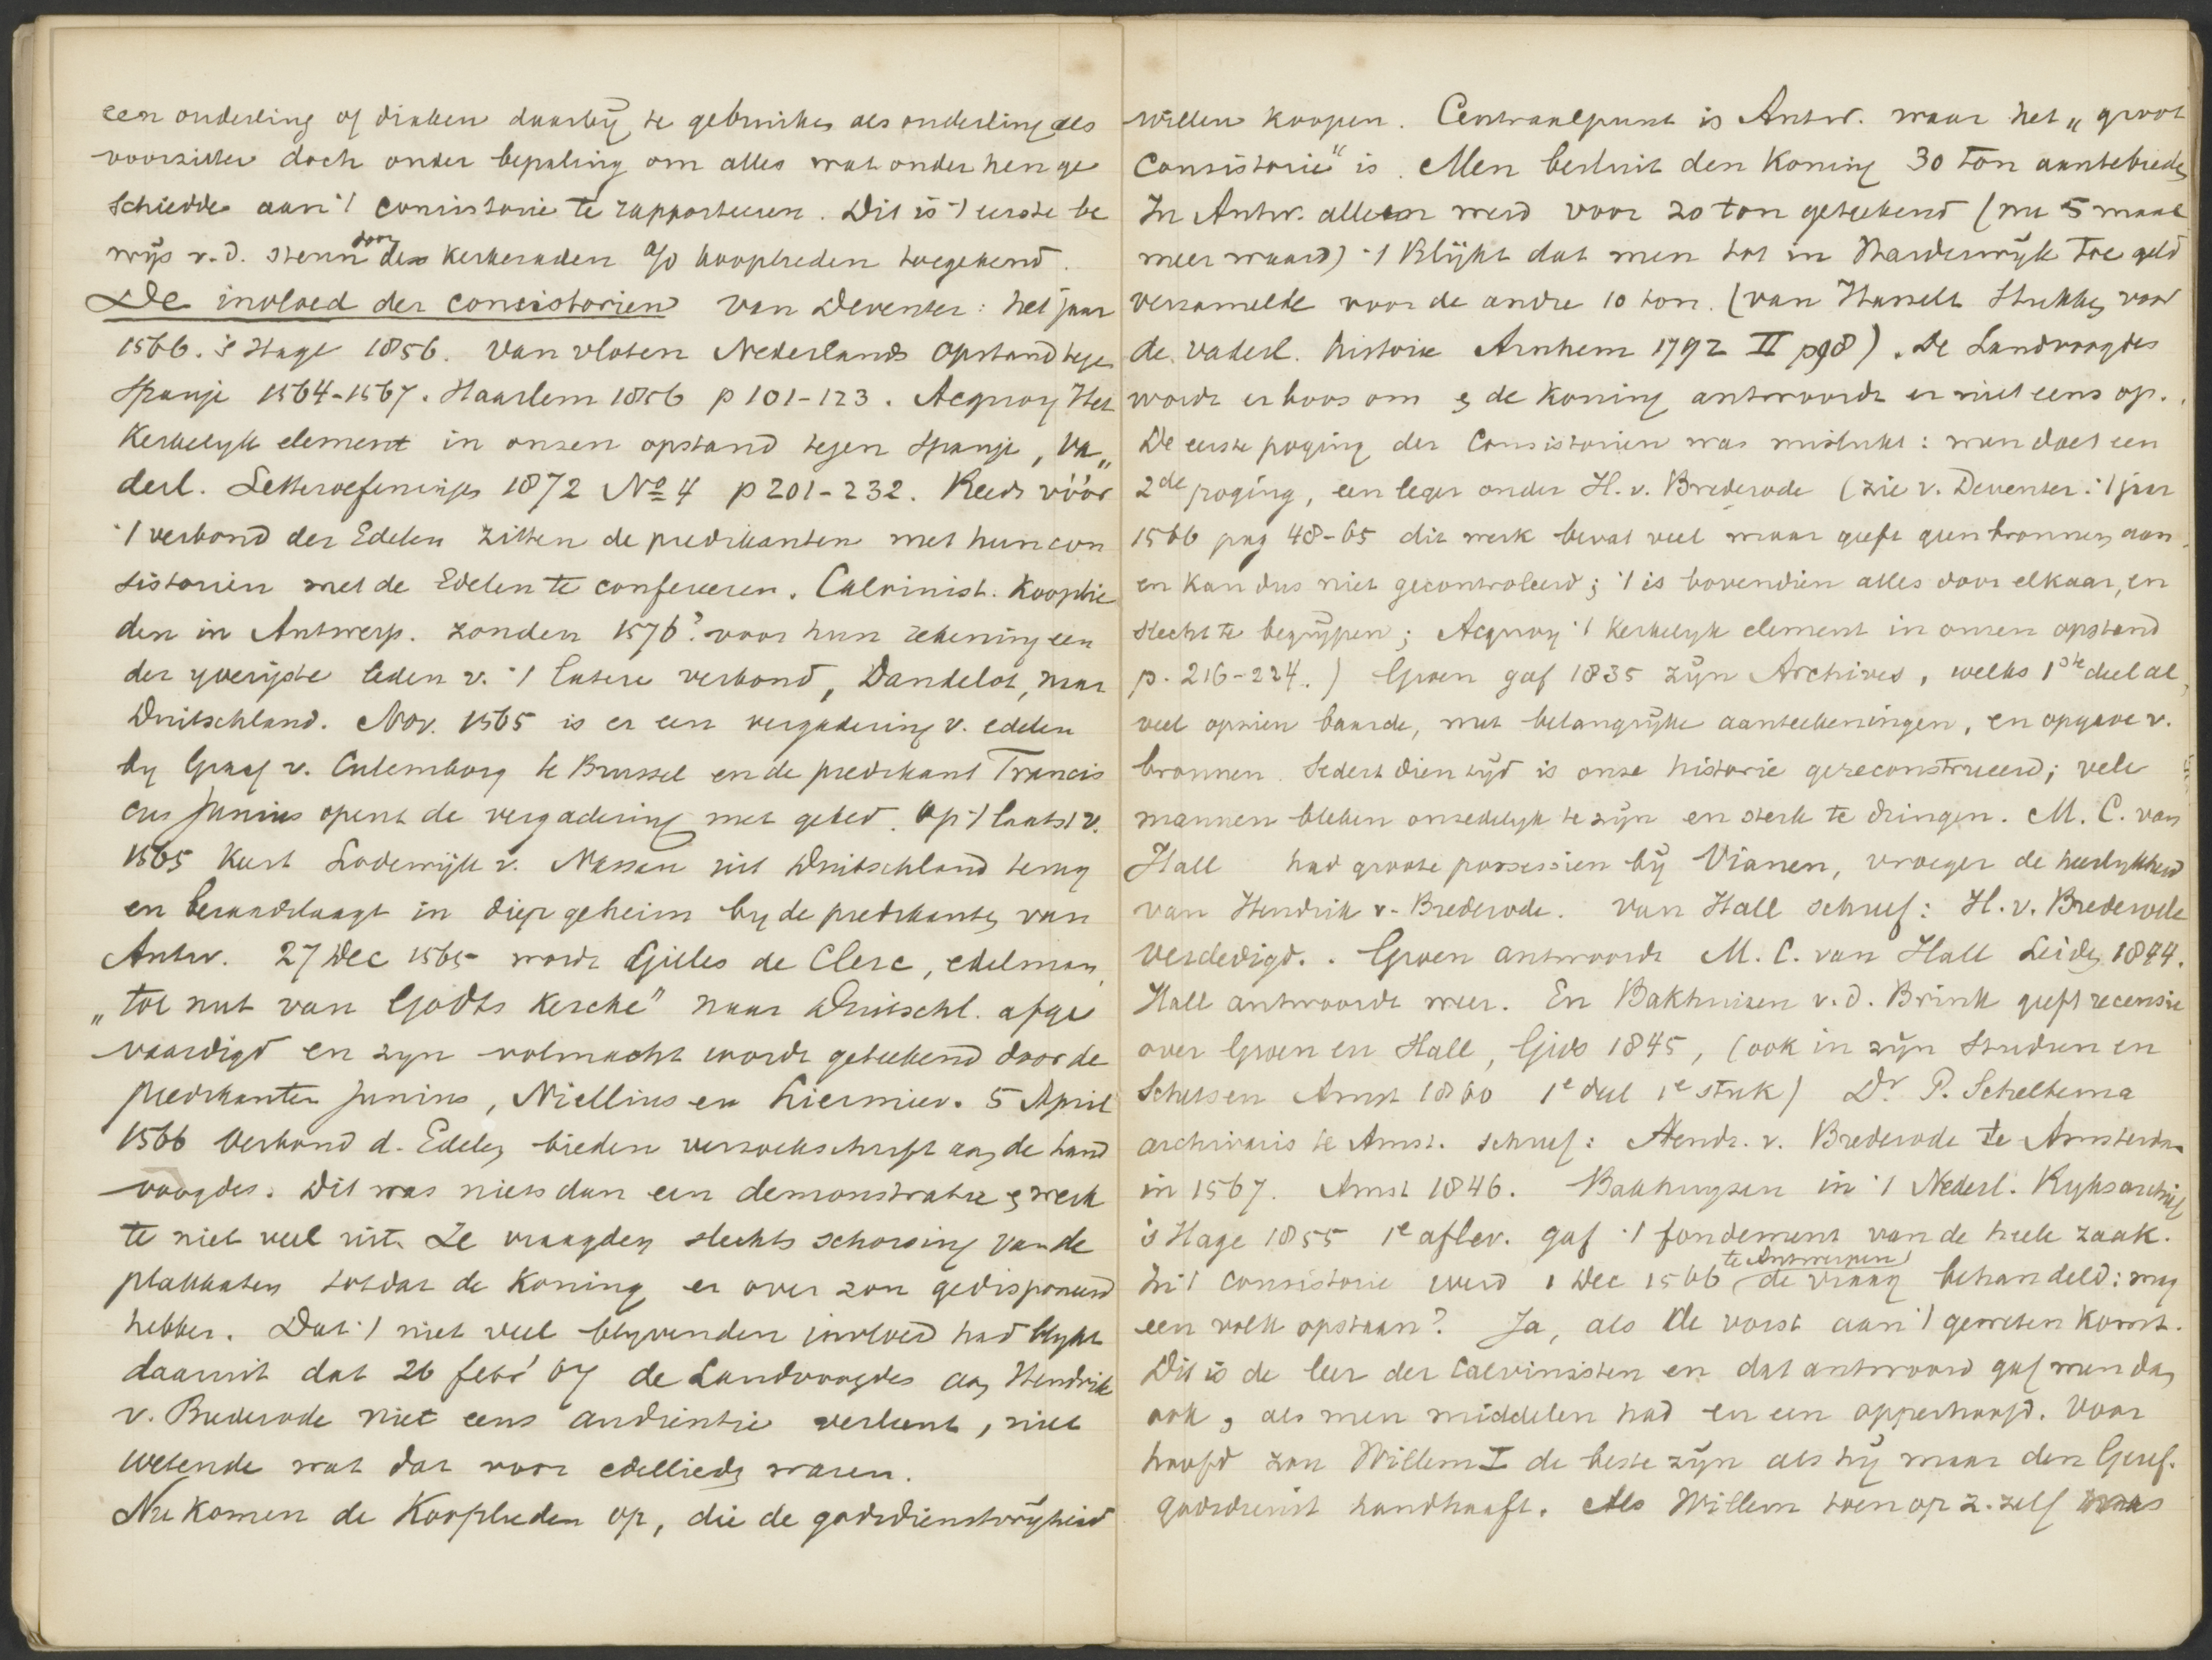 een ouderling of diaken daarbij te gebruiken als ouderling als
voorzitter doch onder bepaling om alles wat onder hen ge
schiedde aan 't consistorie te rapporteeren. Dit is 't eerste be
wijs v.d. steun door de kerkeraden a/d kooplieden toegekend.
De invloed der consistorien van Deventer: het jaar
1566. 's Hage 1856. van vloten Nederlands opstand tegen
Spanje 1564-1567. Haarlem 1856 p 101-123. Acquoy Het
Kerkelyk element in onzen opstand tegen Spanje, Va„
derl. Letteroefeningen 1872 No 4 p 201-232. Reeds vóór
't verbond der Edelen zitten de predikanten met hun con
sistorien met de Edelen te confereeren. Calvinist. Kooplie
den in Antwerp. zonden 1576? voor hun rekening een
der yverigste leden v. 't latere verbond, Dandelot, naar
Duitschland. Nov. 1565 is er een vergadering v. edelen
by Graaf v. Culemborg te Brussel en de predikant Francis
cus Junius opent de vergadering met gebed. Op 't laatst v.
1565 kwt Lodewijk v. Nassau uit Duitschland terug
en beraadslaagt in diep geheim by de predikanten van
Antw. 27 Dec 1565 wordt Gilles de Clerc, edelman,
„tot nut van Godts Kercke" naar Duitschl. afge
vaardigd en zyn volmacht wordt geteekend door de
predikanten Junius, Niellius en 5 April
1566 Verbond d. Edelen bieden verzoekschrift aan de land
voogdes. Dit was niets dan een demonstratie & werk
te niet veel uit. Ze vraagden slechts schorsing van de
plakkaten totdat de Koning er over zou gedisponeerd
hebben. Dat 't niet veel blyvenden invloed had blykt
daaruit dat 26 febr' 67 de Landvoogdes aan Hendrik
v. Brederode niet eens audientie verleent, niet
wetende wat dat voor edellieden waren.
Nu komen de Kooplieden op, die de godsdienstvrijheid
willen koopen. Centraalpunt is Antw. waar het „groot
Consistorie" is. Men besluit den Koning 30 ton aantebieden
In Antw. alleen werd voor 20 ton geteekend (nu 5 maal
meer waard) 't Blijkt dat men tot in Harderwijk toe geld
verzamelde voor de andre 10 ton. (van Hasselt Stukken voor
de vaderl. historie Arnhem 1792 II p98). De Landvoogdes
wordt er boos om & de Koning antwoordt er niet eens op.
De eerste poging der Consistorien was mislukt: men doet een
2de poging, een leger onder H. v. Brederode (zie v. Deventer: 't jaar
1566 pag 48-65 dit werk bevat veel maar geeft geen bronnen aan
en kan dus niet gecontroleerd; 't is bovendien alles door elkaar, en
slecht te begrijpen; Acquoy 't Kerkelyk element in onzen opstand
p. 216-224.) Groen gaf 1835 zijn Archives, welks 1ste deel al
veel opzien baarde, met belangrijke aanteekeningen, en opgave v.
bronnen. Sedert dien tijd is onze historie gereconstrueerd; vele
mannen bleken onzedelyk te zijn en sterk te dringen. M. C. van
Hall had groote possessien bij Vianen, vroeger de heerlykheid
van Hendrik v. Brederode. Van Hall schreef: H. v. Brederode
verdedigd. Groen antwoordt M. C. van Hall Leiden 1844.
Hall antwoordt weer. En Bakhuizen v.d. Brink geeft recensie
over Groen en Hall, Gids 1845, (ook in zijn Studien en
Schetsen Amst 1860 1e deel 1e stuk) Dr P. Scheltema
archivaris te Amst. schreef: Hendr. v. Brederode te Amsterdam
in 1567. Amst 1846. Bakhuyzen in 't Nederl. Ryksarchief
's Hage 1855 1e aflev. gaf 't fondement van de heele zaak.
In 't consistorie werd 1 Dec 1566 te Antwerpen de vraag behandeld: mag
een volk opstaan? Ja, als de vorst aan 't geweten komt.
Dit is de leer der Calvinisten en dat antwoord gaf men dan
ook, als men middelen had en een opperhoofd. Voor
hoofd zou Willem I de beste zijn als hij maar den Geref.
godsdienst handhaaft. Als Willem toen op z. zelf was